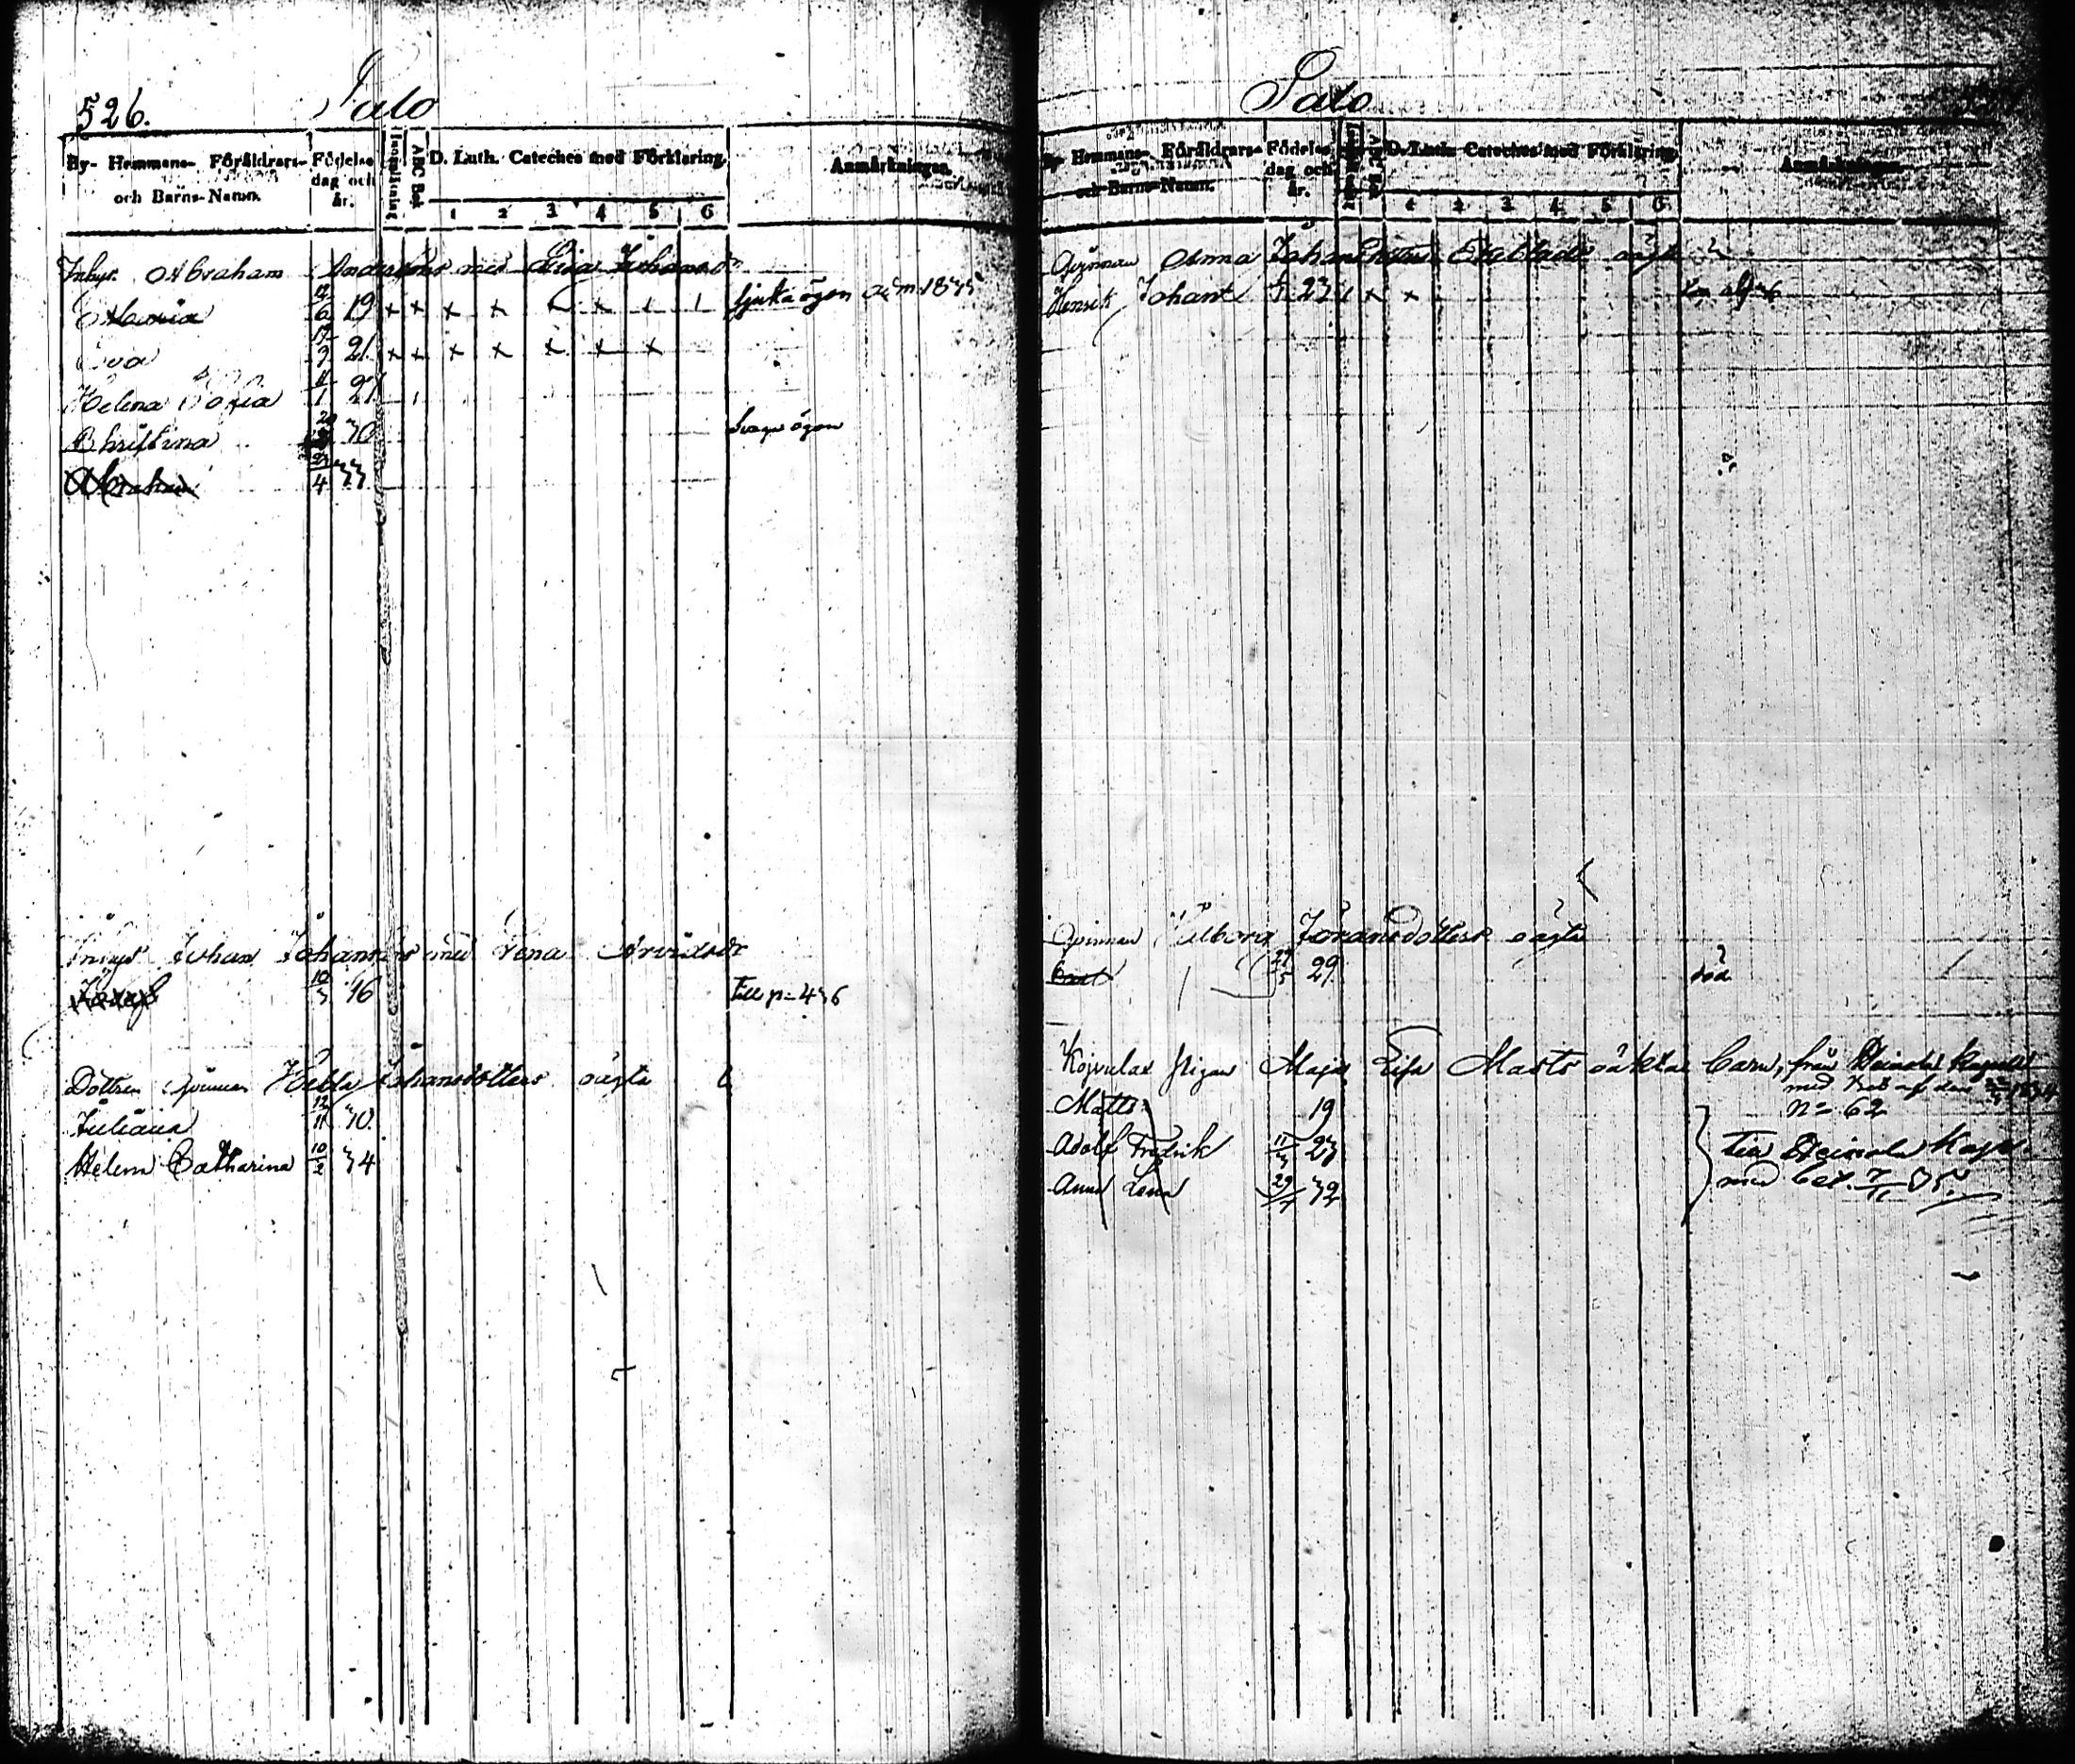 526.
Salo
By- Hemmans- Föräldrars- och Barns-Namn.
Födelse dag och år.
Innanläsning
ABC Bok
D. Luth. Cateches med Förklaring.
1 2 3 4 5 6
Anmärkningar.
Inhys. Abraham Anderssons med Lisa Johansdr
Maria 12/6 19 sjuka ögon adm 1835
Eva 17/9 21.
Helena Sofia 11/1 27
Christina 30 svaga ögon
Abraham 23/4 33
Inhys Johan Johanssons med Lena Arvidsdr
10/3 16 Till p. 436
Dottren qvinnan Hedda Johansdotters oägta
Juliana 12/11 30.
Helena Catharina 10/2 34
Salo
By- Hemmans- Föräldrars- och Barns-Namn.
Födelse dag och år.
ABC Bok
D. Luth. Cateches med Förklaring.
1 2 3 4 5 6
Anmärkningar.
Qvinnan Anna Johansdotters oägta
Henrik Johan 23
Qvinnan Wälborg Göransdotters oägta
29 död
Pigan Maja Lisa Matts oäkta barn, från Heinola Kapell
med bet af den 1834
n° 62
Matts 19
Adolf Fredrik 11/3 23
Anna Lena 29/7 32
till Heinola Kapel
med bet. 35.